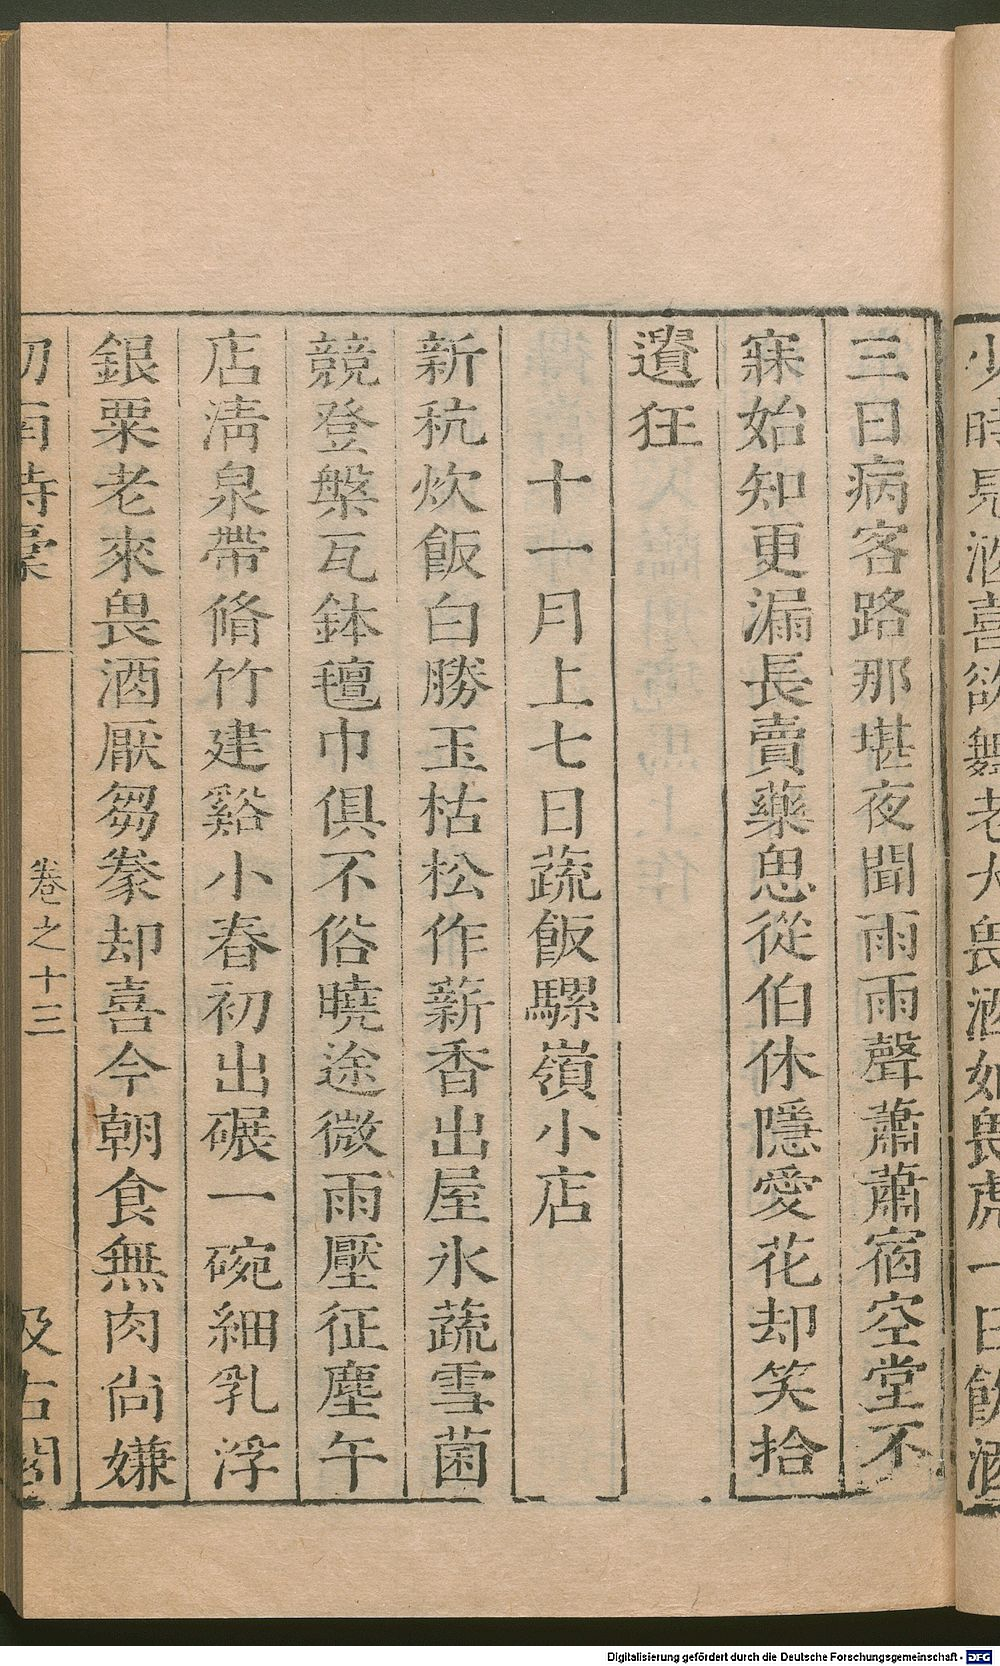 少時見酒喜欲舞老大畏酒如畏虎一日飲酒
三日病客路那堪夜聞雨雨聲蕭蕭宿空堂不
寐始知更漏長賣藥思從伯休隱愛花却笑拾
遺狂
十一月上七日蔬飯騾嶺小店
新秔炊飯白勝玉枯松作薪香出屋氷蔬雪菌
競登槃瓦鉢氊巾俱不俗曉途微雨壓征塵午
店淸泉帶脩竹建谿小春初出碾一碗細乳浮
銀粟老來畏酒厭芻豢却喜今朝食無肉尙嫌
劒南詩槀 卷之十三 汲古閣
Digitalisierung gefördert durch die Deutsche Forschungsgemeinschaft - DFG